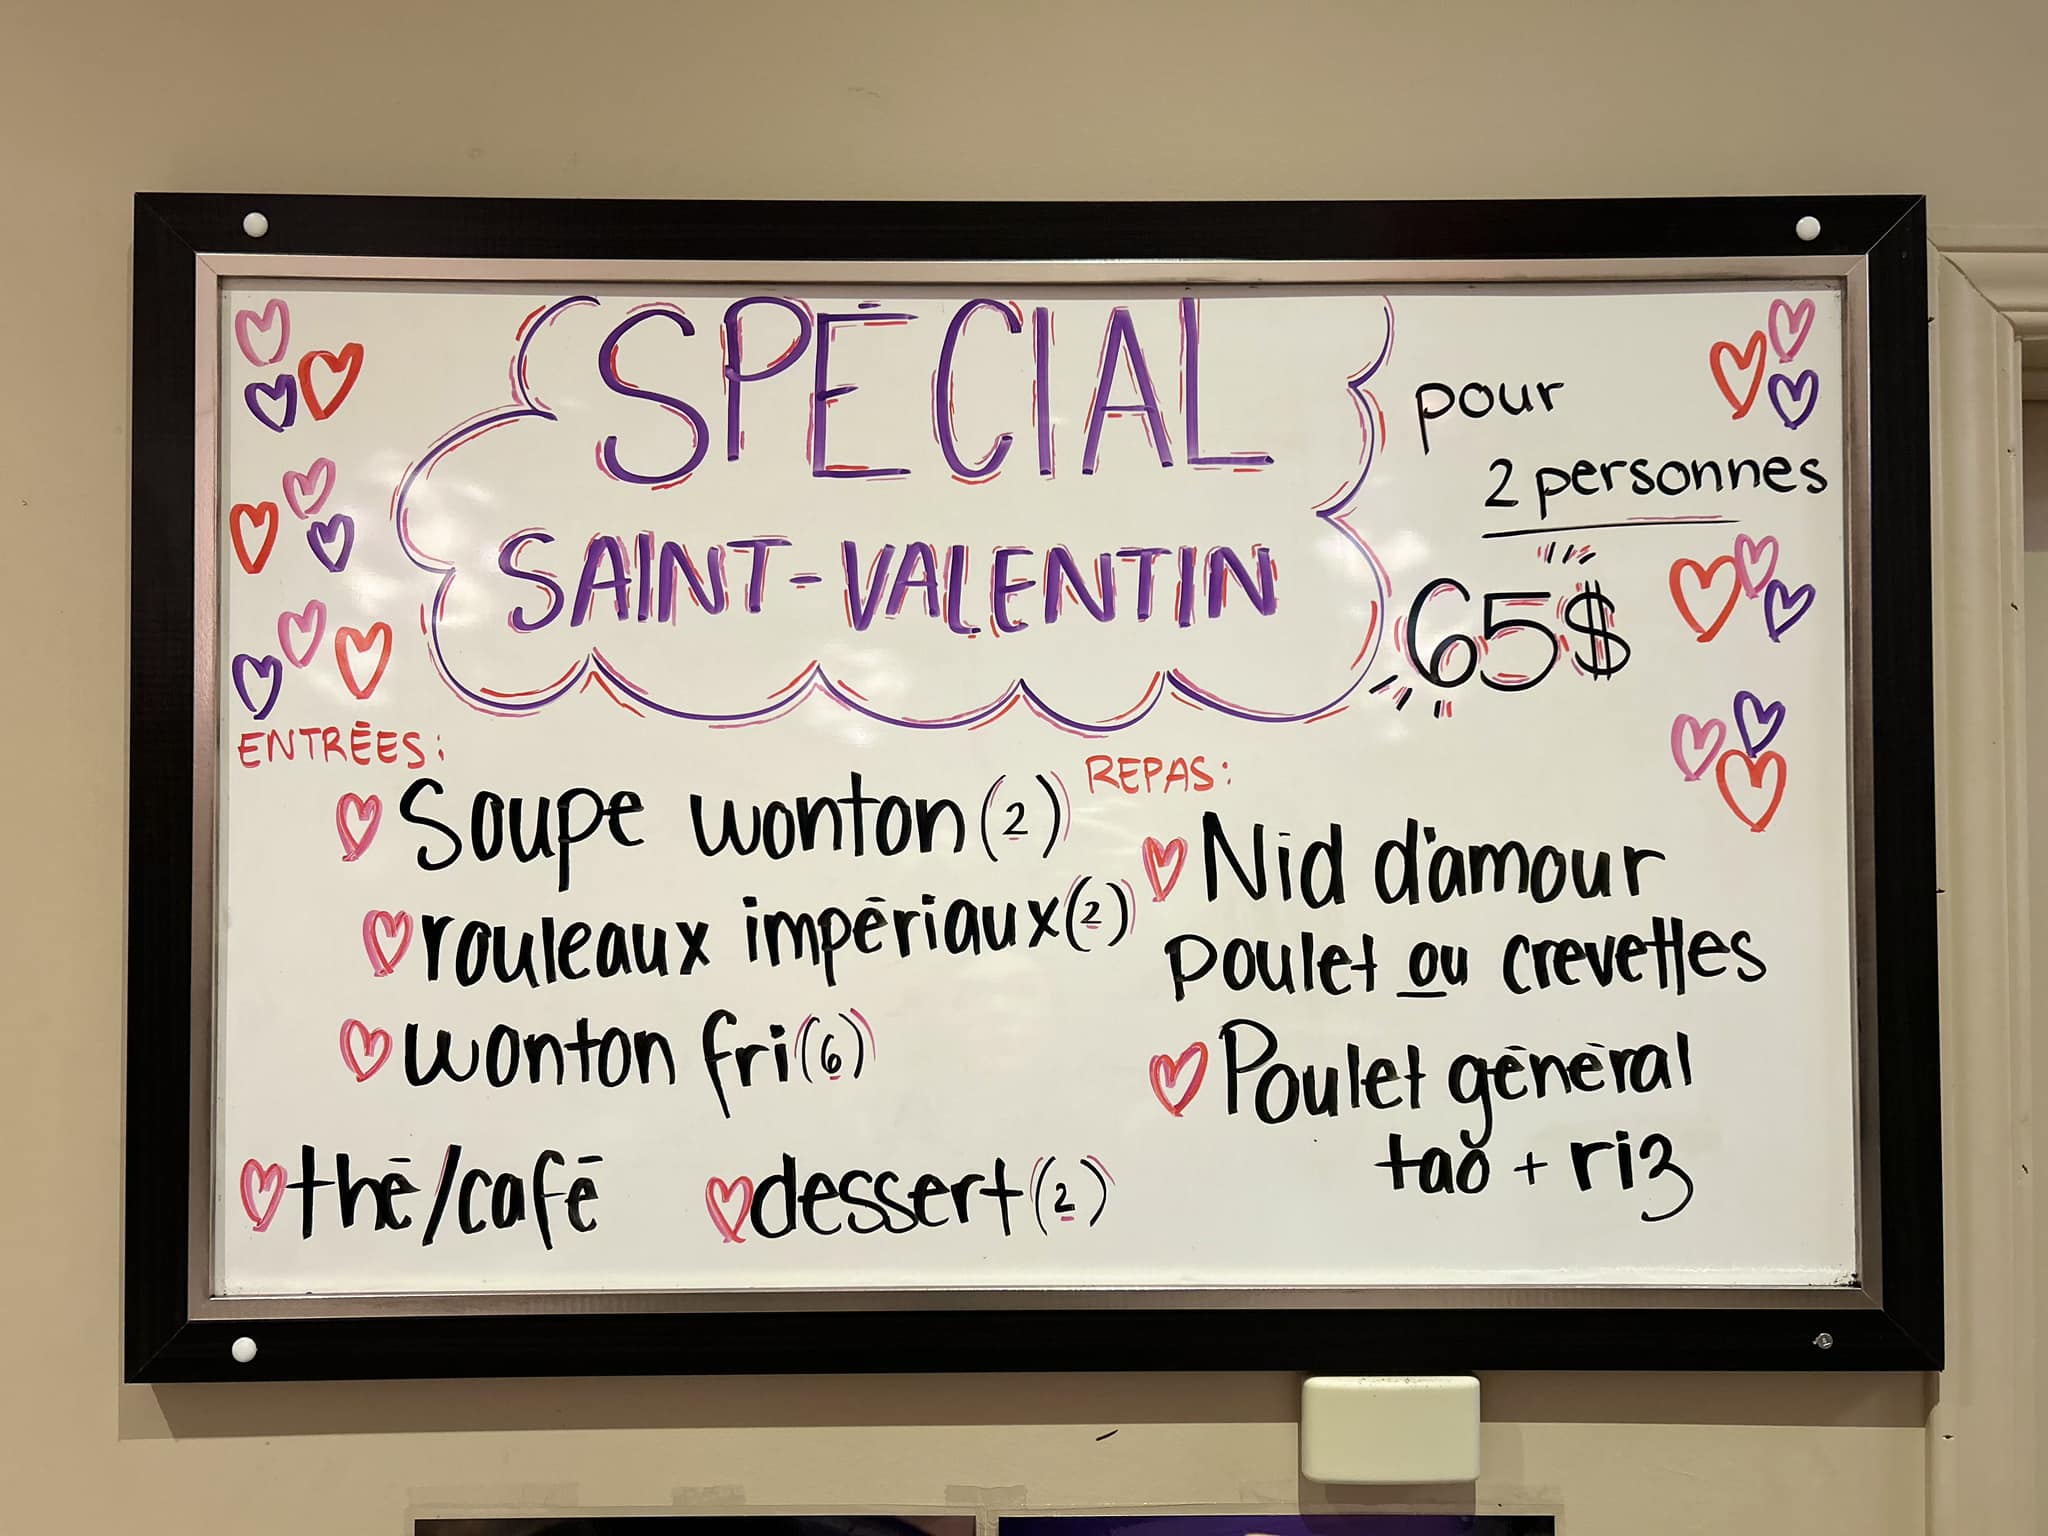 SPÉCIAL
SAINT-VALENTIN
pour
2 personnes
65$
ENTRÉES:
Soupe wonton (2)
rouleaux impériaux (2)
wonton fri (6)
thé/café
dessert (2)
REPAS:
Nid d'amour
poulet ou crevettes
Poulet général
tao + riz